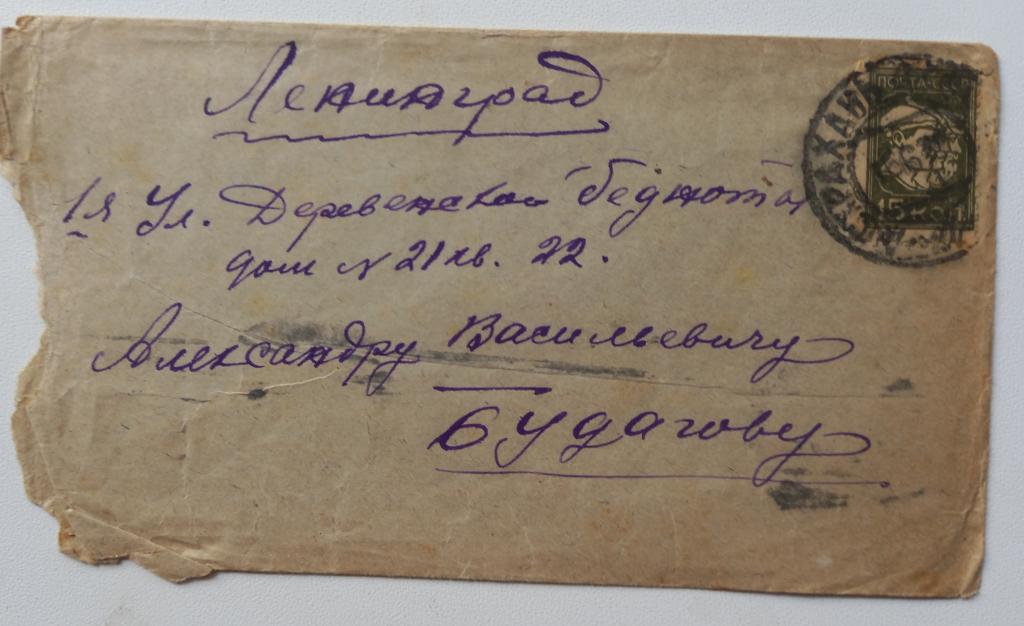 Ленинград
1я Ул. Деревенской бедноты
дом N 21 кв. 22.
Александру Васильевичу
Будагову
ПОЧТА СССР
15 КОП.